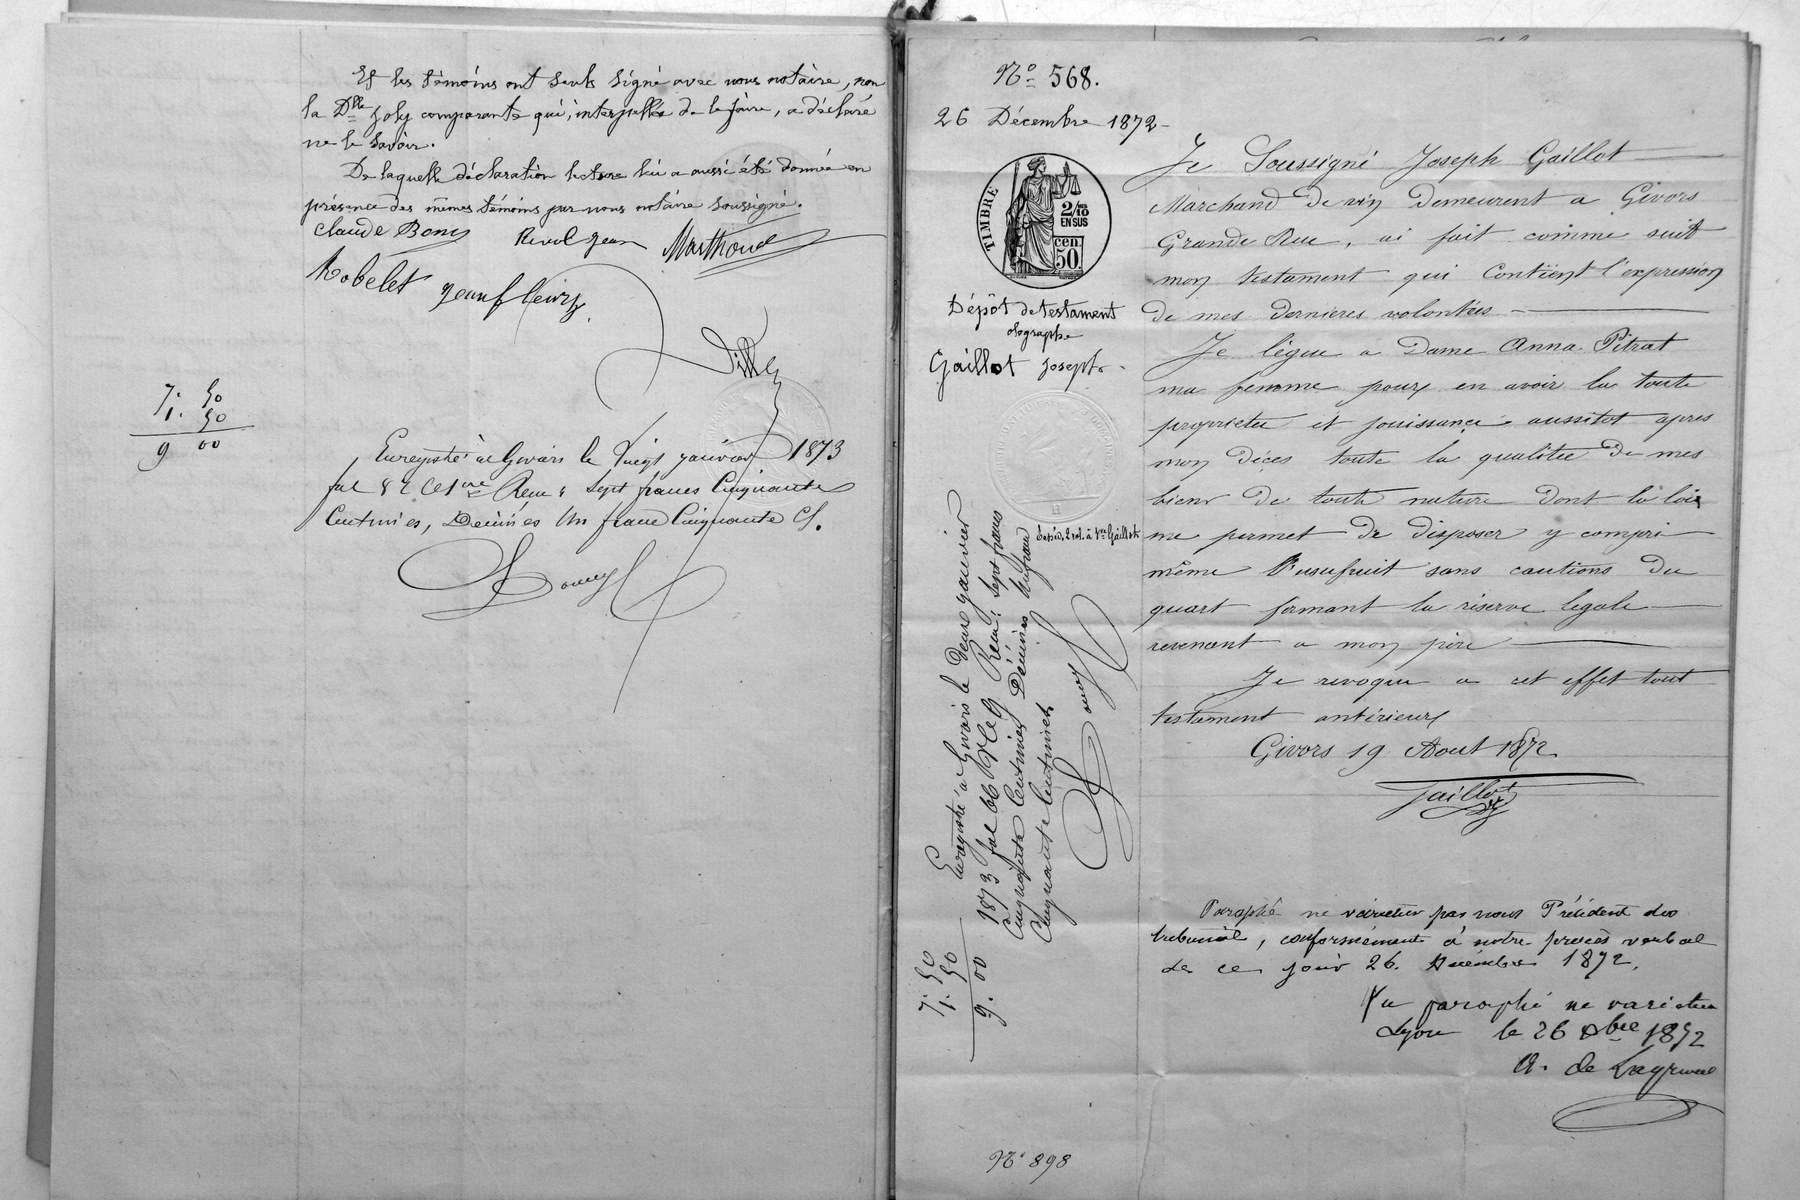 Et les témoins ont seuls signé avec nous notaire, non
la Dlle Joly comparante qui, interpellée de le faire, a déclaré
ne le savoir.
De laquelle déclaration lecture lui a aussi été donnée en
présence des mêmes témoins par nous notaire soussigné.
Claude Bony Revol Jean Marthoud
Robelet Jean fleury
7. 50
1. 50
9 00
Enregistré à Givors le Vingt janvier 1873
fol 82 Rem: Sept francs Cinquante
Centimes, Décimes Un franc Cinquante C.
No 568.
26 Décembre 1872
TIMBRE
2/10
EN SUS
cen
50
Dépôt de testament
olographe
Gaillot Joseph
Expéd. 2 rol. à Vve Gaillot
Enregistré à Givors le Deux janvier
1873 fol 66 Rem: Sept francs
Cinquante Centimes Décimes Un franc
Cinquante Centimes
7. 50
1. 50
9. 00
No 898
Je Soussigné Joseph Gaillot
Marchand De vin Demeurent a Givors
Grande Rue, ai fait comme suit
mon testament qui Contient l'expression
De mes dernieres volontées
Je lègue a Dame Anna Pitrat
ma femme pour en avoir la toute
proprietée et jouissance aussitot apres
mon Déces toute la qualitée De mes
biens De toute nature Dont la loi
me permet De disposer y compri
même l'usufruit sans cautions Du
quart formant la réserve legale
revenent a mon père
Je revoque a cet effet tout
testament antérieur
Givors 19 Aout 1872
Gaillot
Paraphé ne varietur par nous Président du
tribunal, conformément à notre procès verbal
de ce jour 26. Décembre 1872.
Vu paraphé ne varietur
Lyon le 26 Xbre 1872